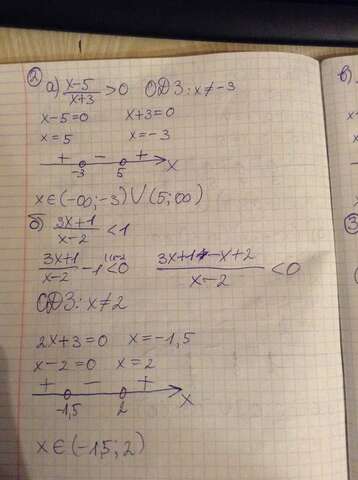 2 а) (x-5)/(x+3) > 0 ОДЗ: x ≠ -3
x-5=0 x+3=0
x=5 x=-3
+ - +
-3 5 x
x ∈ (-∞; -3) ∪ (5; ∞)
б) (3x+1)/(x-2) < 1
(3x+1)/(x-2) - 1 < 0 (3x+1-x+2)/(x-2) < 0
ОДЗ: x ≠ 2
2x+3=0 x=-1,5
x-2=0 x=2
+ - +
-1,5 2 x
x ∈ (-1,5; 2)
в)
3